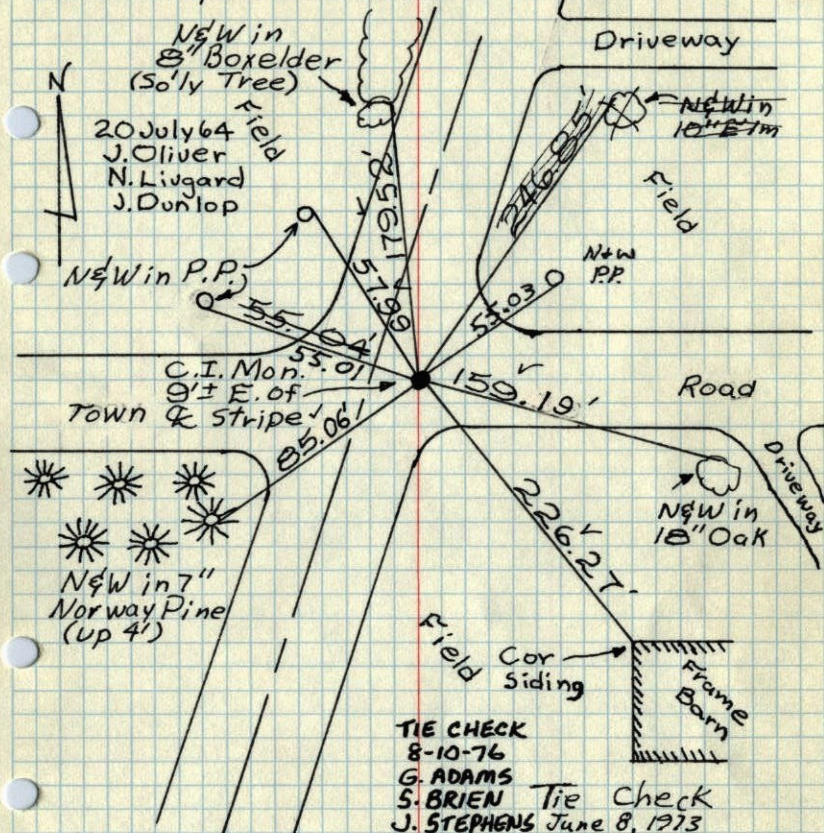 N&W in
8" Boxelder
(So'ly Tree)
Driveway
N
N&W in
10" Elm
20 July 64
J. Oliver
N. Livgard
J. Dunlop
Field
Field
178.58'
246.85'
N&W in P.P.
57.99
N+W
P.P.
55.03
55.04'
55.01
C.I. Mon.
9'± E. of
℄ Stripe
159.19'
Town
Road
85.06'
Driveway
N&W in
18" Oak
226.27'
N&W in 7"
Norway Pine
(up 4')
Field
Cor
Siding
Frame
Barn
TIE CHECK
8-10-76
G. ADAMS
S. BRIEN
J. STEPHENS
Tie Check
June 8, 1973